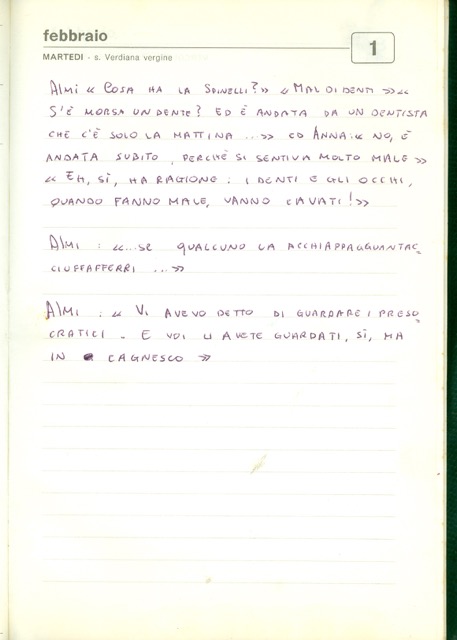 febbraio
MARTEDI - s. Verdiana vergine
1
ALMI « COSA HA LA SPINELLI? » « MAL DI DENTI » «
S'È MORSA UN DENTE? ED È ANDATA DA UN DENTISTA
CHE C'È SOLO LA MATTINA ... » ED ANNA: « NO, È
ANDATA SUBITO, PERCHÈ SI SENTIVA MOLTO MALE »
« EH, SÌ, HA RAGIONE: I DENTI E GLI OCCHI,
QUANDO FANNO MALE, VANNO CAVATI! »
ALMI : « ...SE QUALCUNO LA ACCHIAPPAGGUANTAC=
CIUFFAFFERRI ... »
ALMI : « VI AVEVO DETTO DI GUARDARE I PRESO=
CRATICI - E VOI LI AVETE GUARDATI, SÌ, MA
IN CAGNESCO »